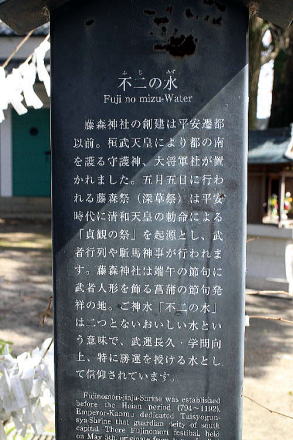 ふじ みず
不二の水
Fuji no mizu-Water
藤森神社の創建は平安遷都
以前。桓武天皇により都の南
を護る守護神、大将軍社が置
かれました。五月五日に行わ
れる藤森祭（深草祭）は平安
時代に清和天皇の勅命による
「貞観の祭」を起源とし、武
者行列や駈馬神事が行われま
す。藤森神社は端午の節句に
武者人形を飾る菖蒲の節句発
祥の地。ご神水「不二の水」
は二つとないおいしい水とい
う意味で、武運長久・学問向
上、特に勝運を授ける水とし
て信仰されています。
Fujinomori-jinja-Shrine was established
before the Heian period (794~1192).
Emperor-Kanmu dedicated Taisyogun-
sya-Shrine that guardian deity of south
capital. There Fujinomori festibal, held
on May 5th,